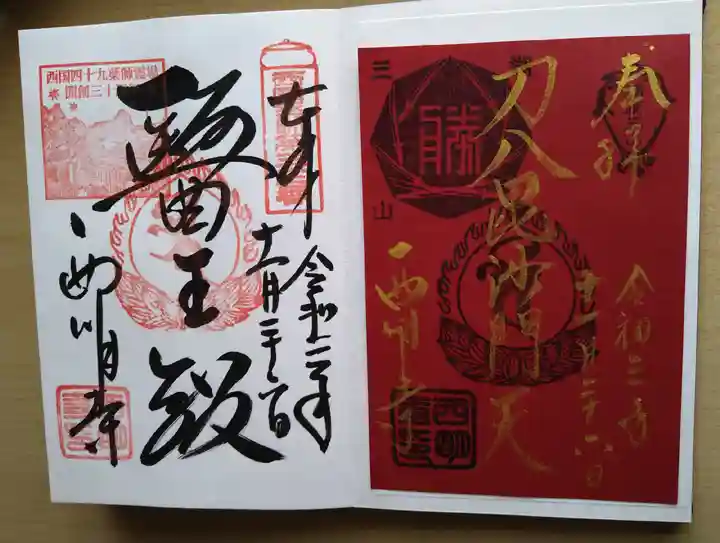 奉拝
刀八毘沙門天
西明寺
令和二年
十一月二十六日
勝
三
山
奉拝
令和二年
十一月二十六日
醫王殿
西明寺
西国四十九薬師霊場
開創三十